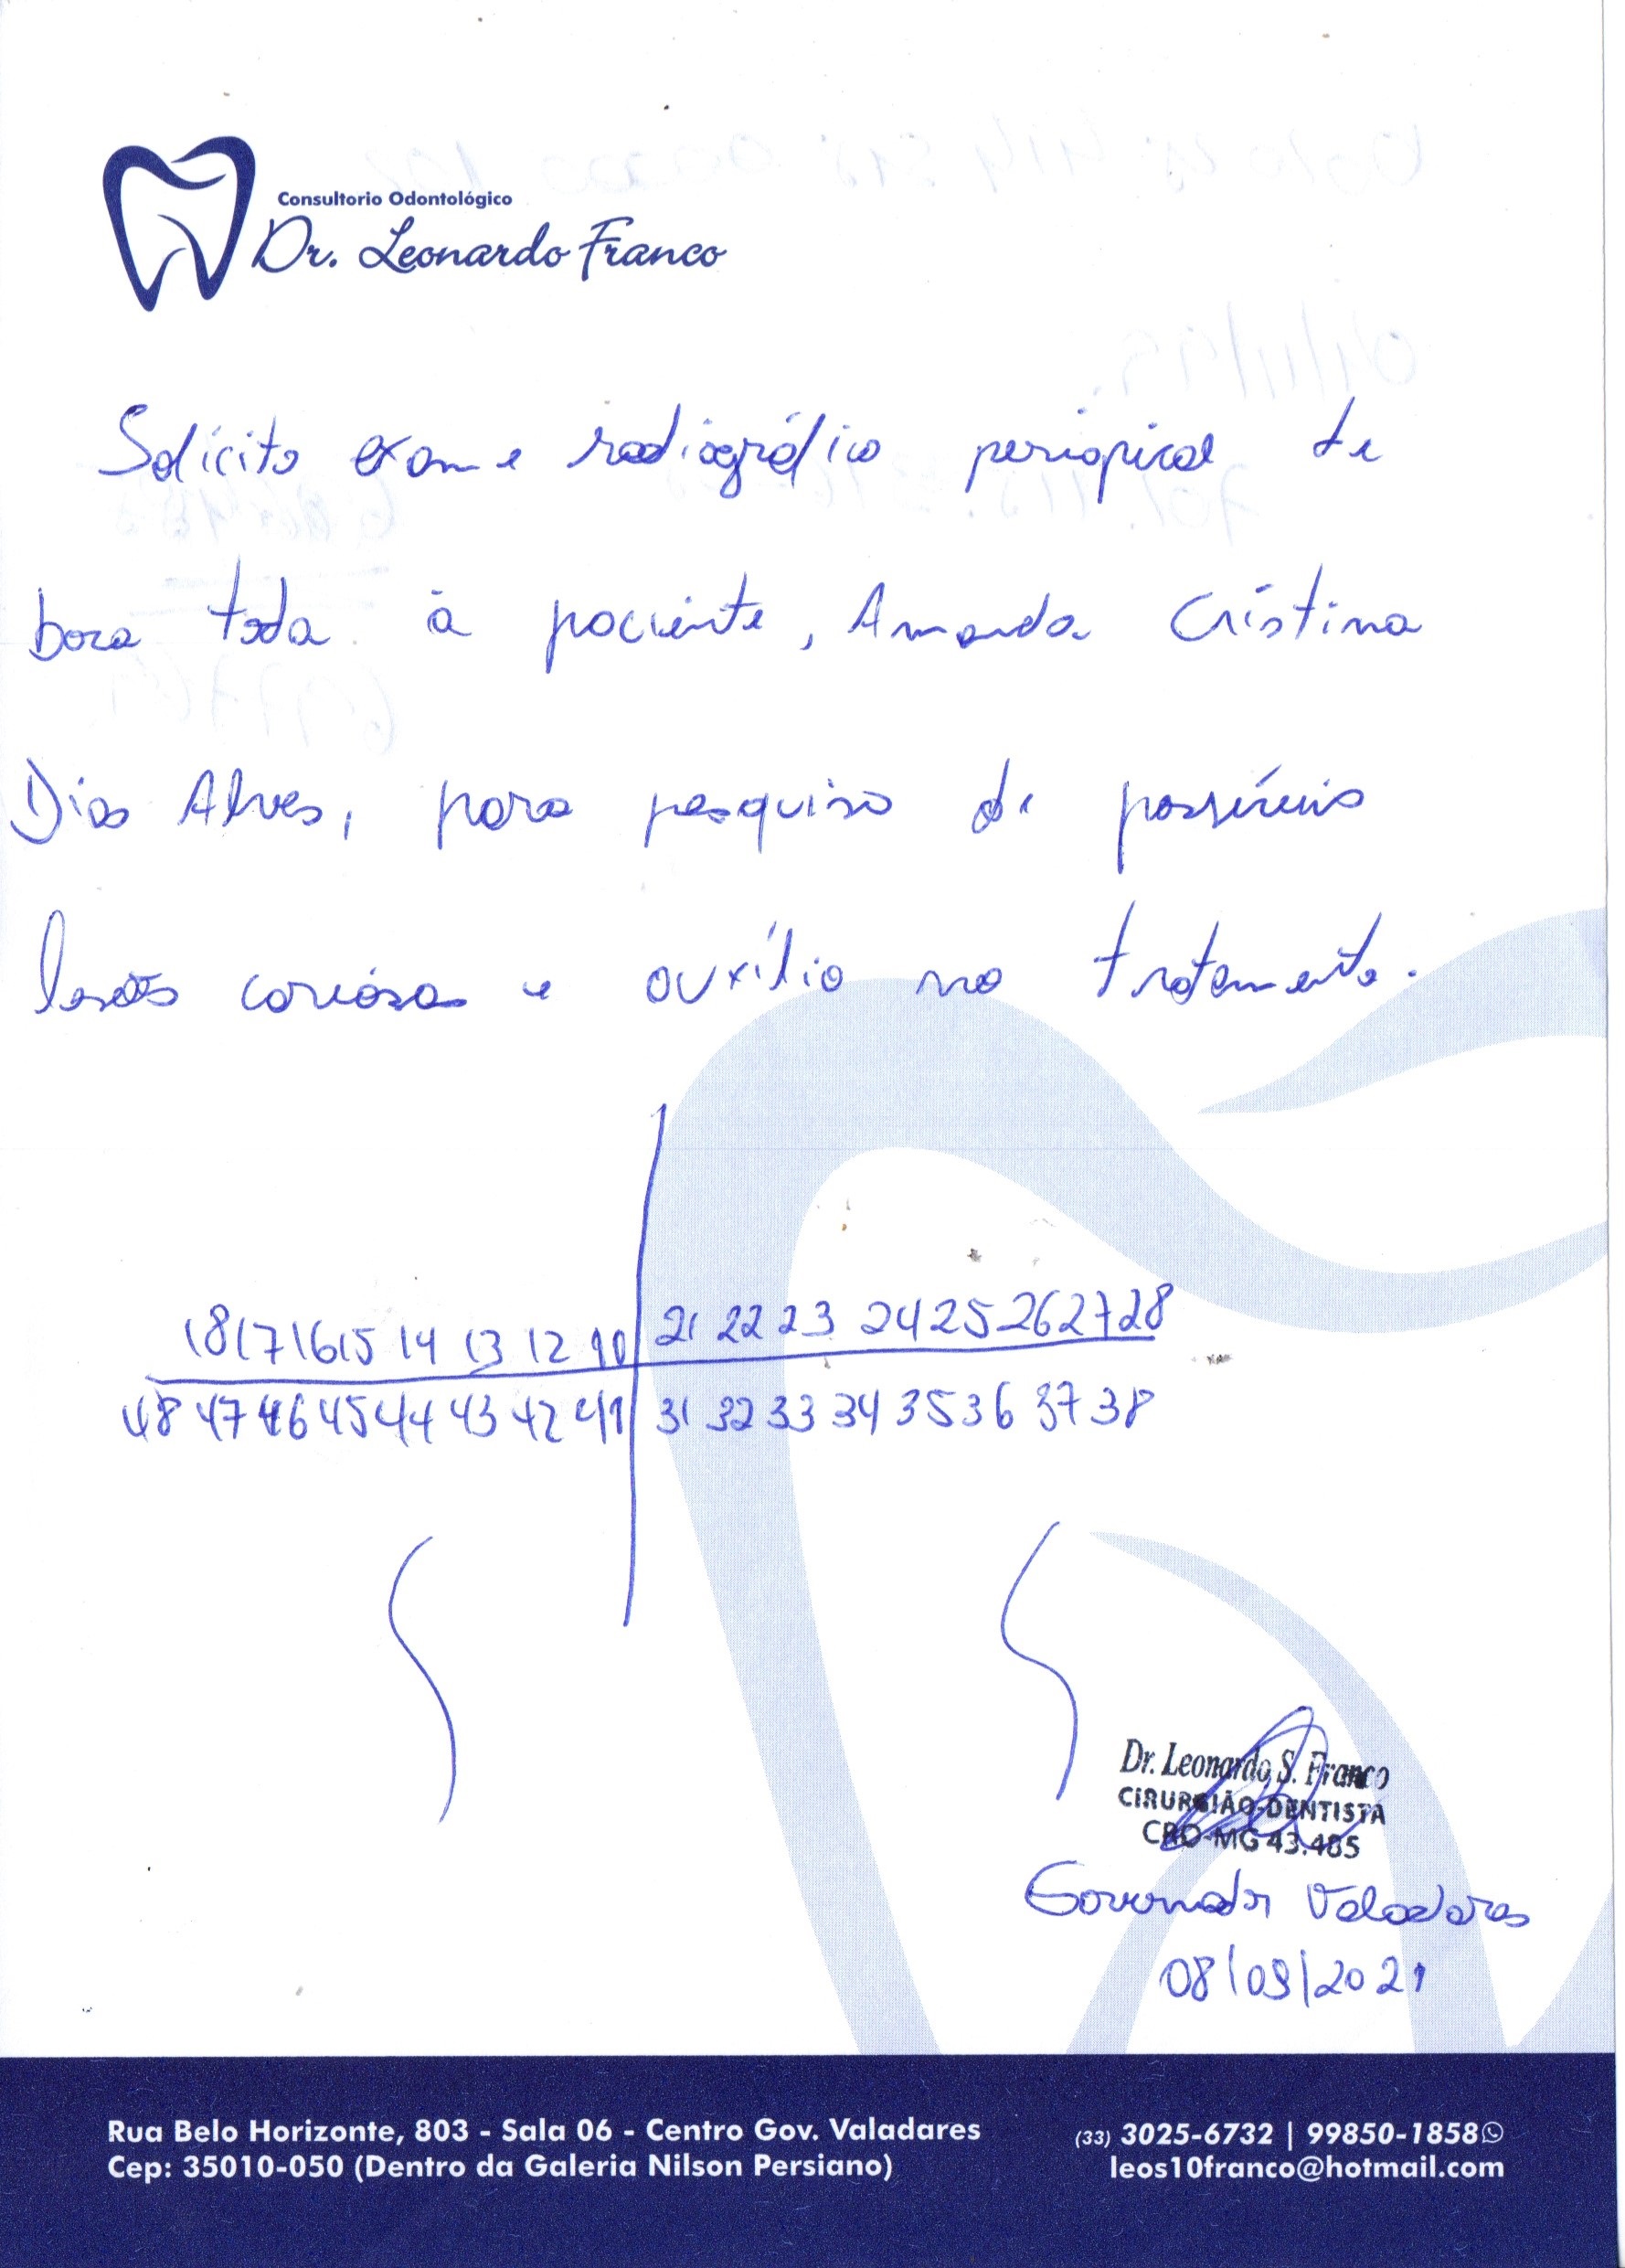 Consultorio Odontológico
Dr. Leonardo Franco
Solicito exame radiográfico periapical de
boca toda à paciente, Amanda Cristina
Dias Alves, para pesquisa de possíveis
lesões cariosas e auxílio no tratamento.
18 17 16 15 14 13 12 21 22 23 24 25 26 27 28
48 47 46 45 44 43 42 41 31 32 33 34 35 36 37 38
Dr. Leonardo S. Franco
CIRURGIÃO-DENTISTA
CRO-MG 43.485
Governador Valadares
08/09/2021
Rua Belo Horizonte, 803 - Sala 06 - Centro Gov. Valadares
Cep: 35010-050 (Dentro da Galeria Nilson Persiano)
(33) 3025-6732 | 99850-1858
leos10franco@hotmail.com